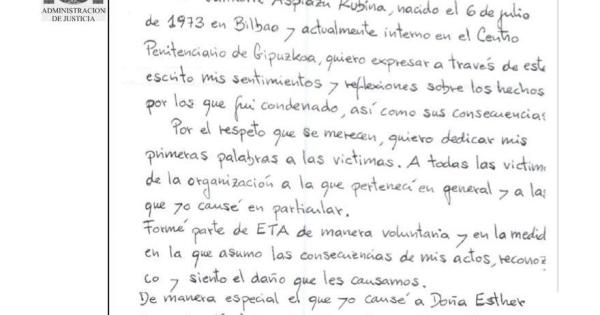 ADMINISTRACION
DE JUSTICIA
Aspiazu Rubina, nacido el 6 de julio
de 1973 en Bilbao y actualmente interno en el Centro
Penitenciario de Gipuzkoa, quiero expresar a través de este
escrito mis sentimientos y reflexiones sobre los hechos
por los que fui condenado, así como sus consecuencias
Por el respeto que se merecen, quiero dedicar mis
primeras palabras a las victimas. A todas las victim
de la organización a la que pertenecí en general y a las
que yo causé en particular.
Formé parte de ETA de manera voluntaria y en la medid
en la que asumo las consecuencias de mis actos, reconoz
co y siento el daño que les causamos.
De manera especial el que yo causé a Doña Esther